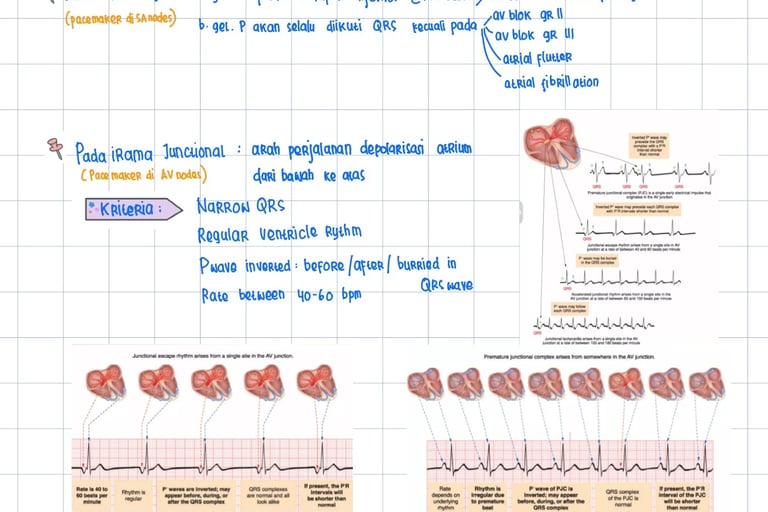 (pacemaker di SA nodes)
b. gel. P akan selalu diikuti QRS kecuali pada
av blok gr II
av blok gr III
atrial flutter
atrial fibrillation
Pada irama Junctional : arah perjalanan depolarisasi atrium
(Pacemaker di AV nodes)
dari bawah ke atas
Kriteria :
NARROW QRS
Regular ventricle Rythm
P wave inverted : before / after / burried in
QRS wave
Rate between 40-60 bpm
Inverted P' wave may
precede the QRS
complex with a P'R
interval shorter
than normal
QRS QRS QRS QRS
Premature junctional complex (PJC) is a single early electrical impulse that
originates in the AV junction.
Inverted P' wave may precede each QRS complex
with P'R intervals shorter than normal
QRS
Junctional escape rhythm arises from a single site in the AV
junction at a rate of between 40 and 60 beats per minute
P' waves may be buried
in the QRS complex
QRS
Accelerated junctional rhythm arises from a single site in the AV
junction at a rate of between 60 and 100 beats per minute
P' waves may follow
each QRS complex
QRS
Junctional tachycardia arises from a single site in the AV
junction at a rate of between 100 and 180 beats per minute
Junctional escape rhythm arises from a single site in the AV junction.
Rate is 40 to
60 beats per
minute
Rhythm is
regular
P' waves are inverted; may
appear before, during, or
after the QRS complex
QRS complexes
are normal and all
look alike
If present, the P'R
intervals will
be shorter than
normal
Premature junctional complex arises from somewhere in the AV junction.
Rate
depends on
underlying
rhythm
Rhythm is
irregular due
to premature
beat
P' wave of PJC is
inverted; may appear
before, during, or after the
QRS complex
QRS complex
of the PJC is
normal
If present, the P'R
interval of the PJC
will be shorter
than normal